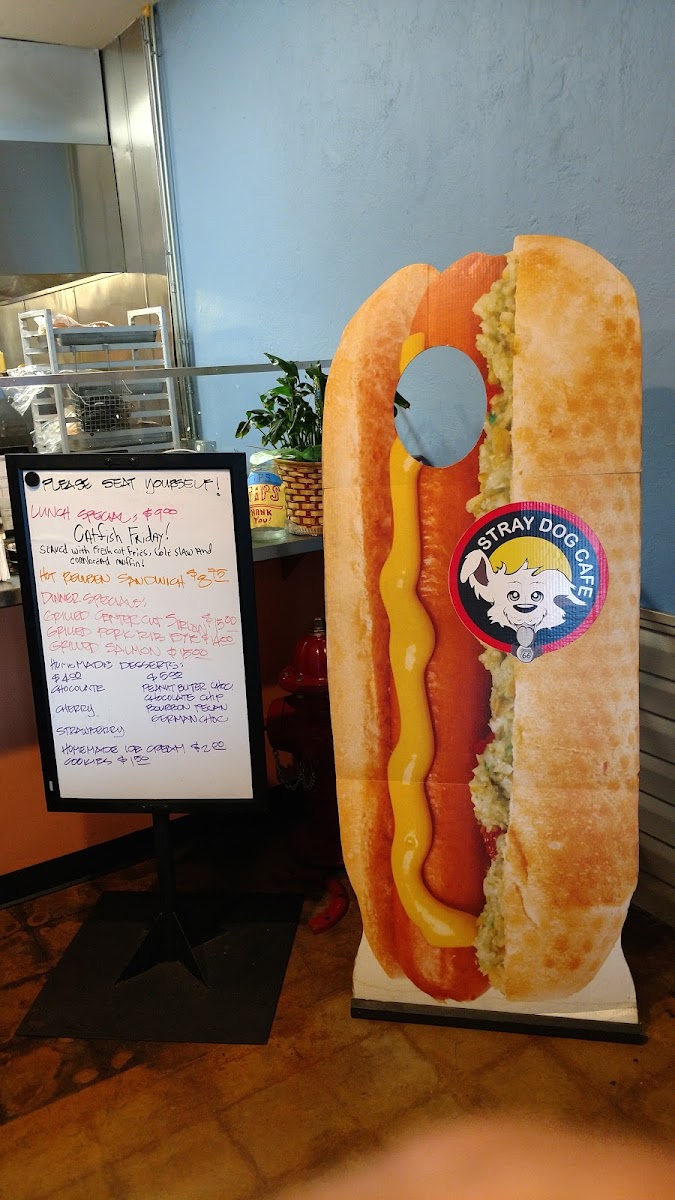 PLEASE SEAT YOURSELF!
LUNCH SPECIAL: $9.00
Catfish Friday!
Served with fresh cut fries, Cole slaw and
cornbread muffin!
HOT REUBEN SANDWICH $8.95
DINNER SPECIALS:
GRILLED CENTER CUT SIRLOIN $15.00
GRILLED PORK RIB EYE $14.00
GRILLED SALMON $15.00
HOMEMADE DESSERTS:
$4.00 $5.00
CHOCOLATE PEANUT BUTER CHOC
CHOCOLATE CHIP
CHERRY BOURBON PECAN
GERMAN CHOC
STRAWBERRY
HOMEMADE ICE CREAM $2.00
COOKIES $1.50
THANK
YOU!
STRAY DOG CAFE
66